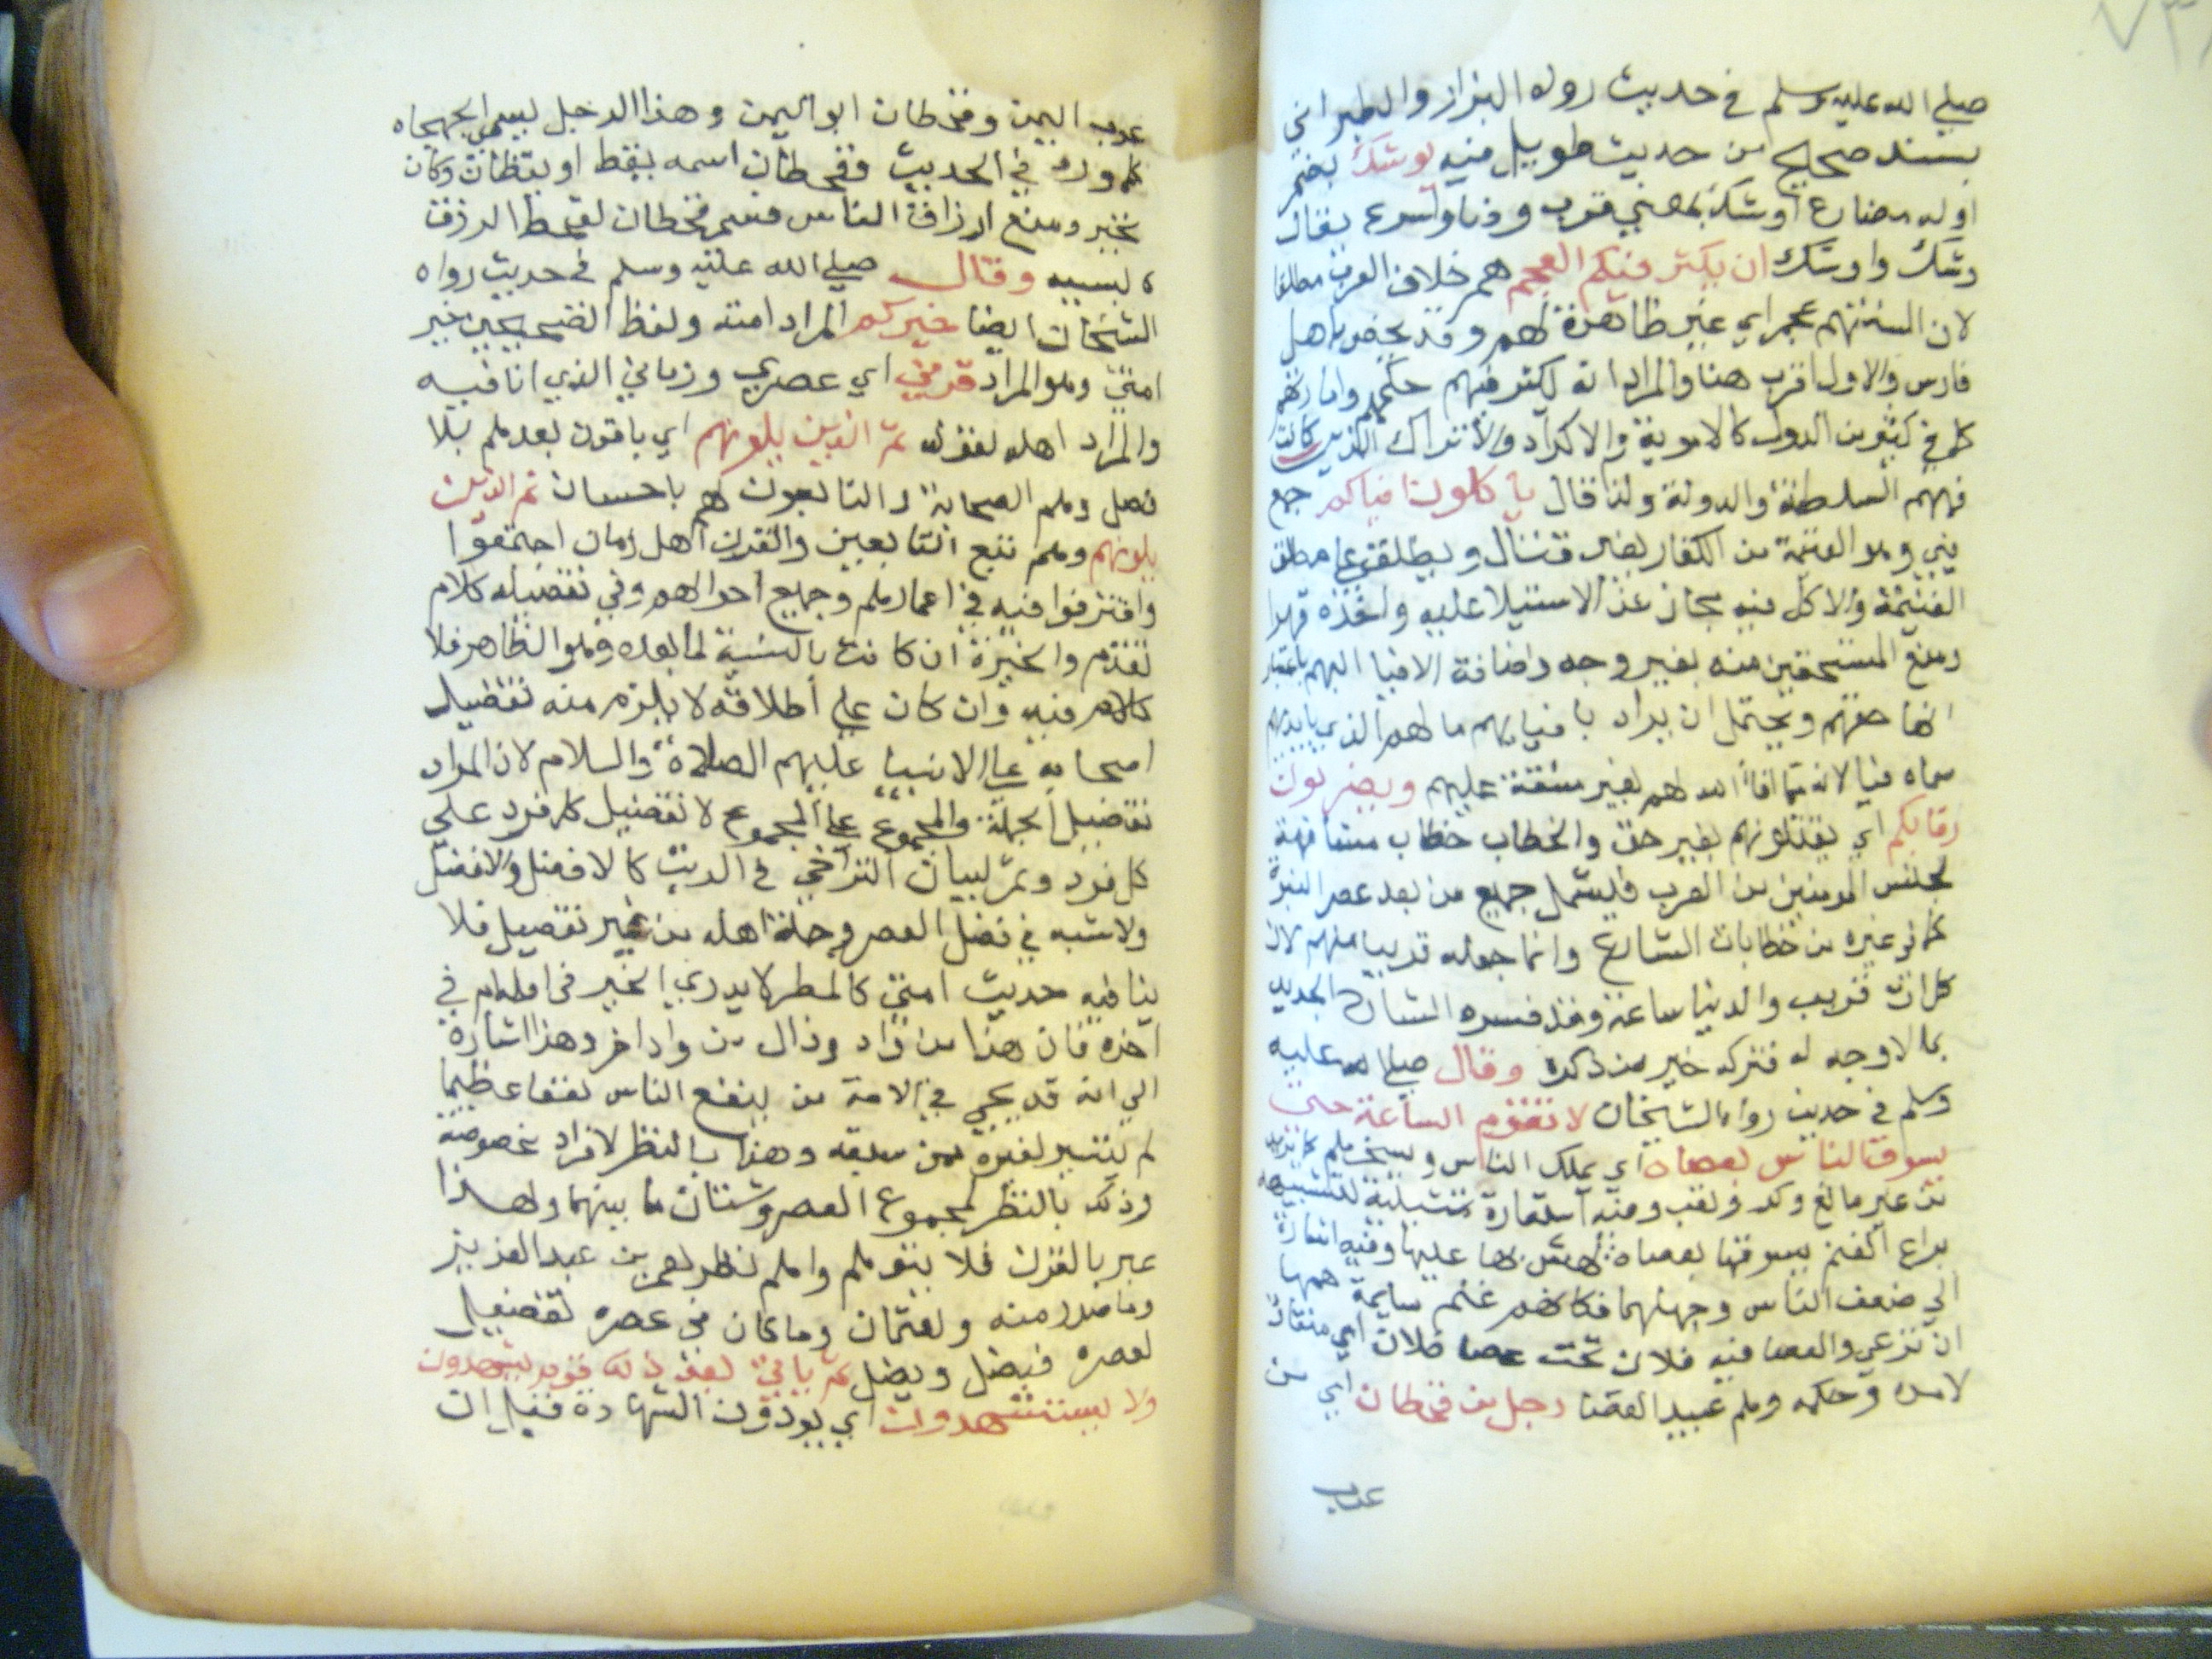 صلي الله عليه وسلم في حديث رواه البزار والطبراني
بسند صحيح من حديث طويل فيه يوشك بضم
اوله مضارع اوشك بمعني قرب ودنا واسرع يقال
وشك واوشك ان يكثر فيكم العجم هم خلاف العرب مطلقا
لان السنتهم عجم اي غير ظاهرة لهم وقد يخص باهل
فارس والاول اقرب هنا والمراد انه يكثر فيهم حكمهم وامارتهم
كما في كثير من الدول كالاموية والاكراد والاتراك الذين كانت
فيهم السلطنة والدولة ولذا قال ياكلون افياكم جمع
فيئ وهو الغنيمة من الكفار بغير قتال ويطلق علي مطلق
الغنيمة والاكل فيه مجاز عن الاستيلا عليه واخذه قهرا
ومنع المستحقين منه بغير وجه واضافة الافيا اليهم باعتبار
انها حقهم ويحتمل ان يراد بافيايهم ما لهم الذي بايديهم
سماه فيا لانه مما افاأ الله لهم بغير مشقة عليهم ويضربون
رقابكم اي يقتلونهم بغير حق والخطاب خطاب مشافهة
لجنس المومنين من العرب فليشمل جميع من بعد عصر النبوة
كما في غيره من خطابات الشارع وانما جعله قريبا منهم لان
كل ات قريب والدنيا ساعة وقد فسره الشارح الجديد
بما لا وجه له فتركه خير من ذكره وقال صلي الله عليه
وسلم في حديث رواه الشيخان لا تقوم الساعة حتي
يسوق الناس بعصاه اي يملك الناس ويسخرهم كما يريد
من غير مانع وكد وتعب وفيه استعارة تمثيلية لتشبيهه
براع الغنم يسوقها بعصاه يهش بها عليها وفيه اشارة
الي ضعف الناس وجهلهم فكانهم غنم سايمة همها
ان ترعي والعصا فيه فلان تحت عصا فلان اي منقاد
لامره وحكمه وهم عبيد العصا رجل من قحطان اي من
عرب
عرب اليمن وقحطان ابو اليمن وهذا الرجل يسمي الجهجاه
كما ورد في الحديث وقحطان اسمه يقط او يقظان وكان
ارزاقه الناس فسمي قحطان لقحط الرزق
بسببه وقال صلي الله عليه وسلم في حديث رواه
الشيخان ايضا خيركم المراد امته ولفظ الصحيحين خير
امتي وهو المراد قرني اي عصري وزماني الذي انا فيه
والمراد اهله لقوله ثم الذين يلونهم اي ياتون بعدهم بلا
فصل وهم الصحابة والتابعون لهم باحسان ثم الذين
يلونهم وهم تبع التابعين والقرن اهل زمان اجتمعوا
واقترفوا فيه في اعمارهم وجميع احوالهم وفي تفصيله كلام
تقدم والخيرة ان كانت بالنسبة لما بعده وهو الظاهر فلا
كلام فيه وان كان علي اطلاقه لا يلزم منه تفضيل
اصحابه علي الانبيا عليهم الصلاة والسلام لان المراد
تفضيل الجملة والمجموع علي المجموع لا تفضيل كل فرد علي
كل فرد وثم لبيان التراخي في الرتب كالافضل والافضل
ولا شبه في فضل العصر وجلة اهله من غير تفصيل فلا
ينافيه حديث امتي كالمطر لا يدري الخير في اوله ام في
اخره فان هذا من واد وذاك من واد اخر وهذا اشارة
الي انه قد يجي في الامة من ينفع الناس نفعا عظيما
لم يتيسر لغيره ممن سبقه وهذا بالنظر لافراد مخصوصة
وذلك بالنظر لمجموع العصر وشتان ما بينهما ولهذا
عبر بالقرن فلا يتوهم واهم نظر لعمر بن عبد العزيز
وما صدر منه ولعثمان وما كان في عصره تفضيل
لعصره فيضل ويضل ثم ياتي بعد ذلك قوم يشهدون
ولا يستشهدون اي يودون الشهادة قبل ان